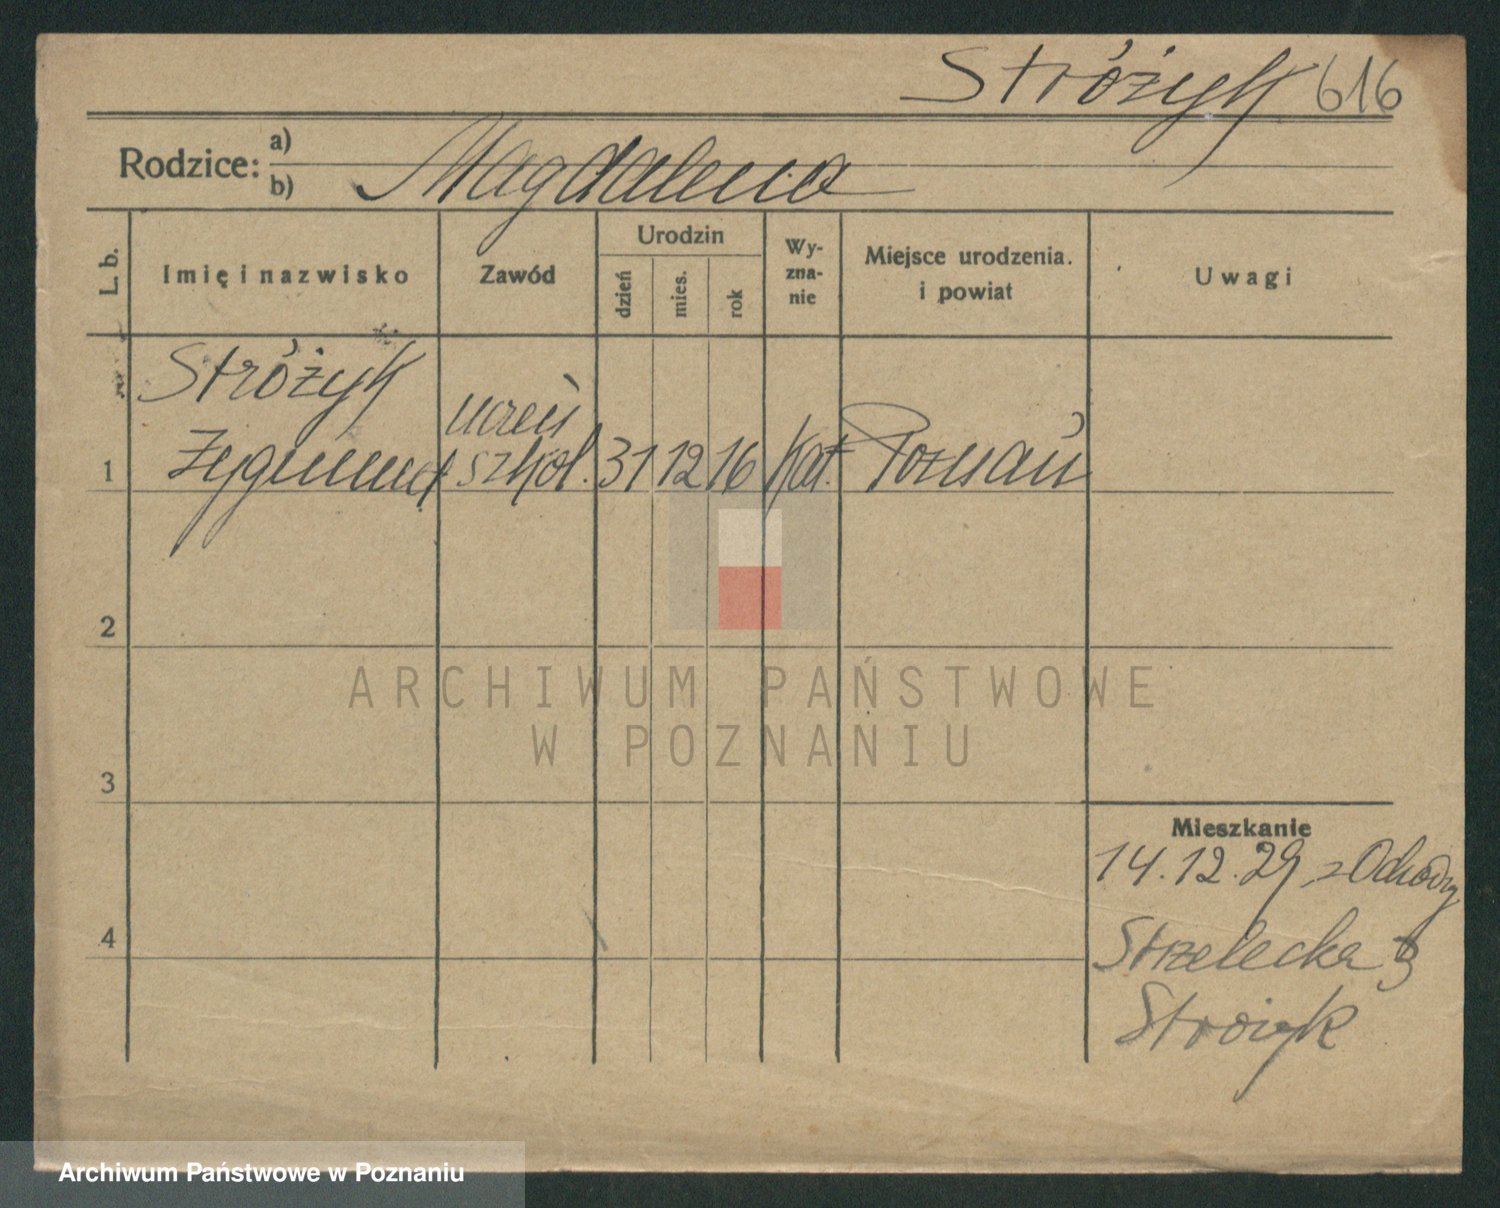 Stróżyk 616
Rodzice: a)
b) Magdalena
L. b.
Imię i nazwisko
Zawód
Urodzin
dzień
mies.
rok
Wy-
zna-
nie
Miejsce urodzenia.
i powiat
Uwagi
Stróżyk
uczeń
1 Zygmunt szkol. 31 12 16 kat. Poznań
2
3
4
Mieszkanie
14.12.29 z Ochodzy
Strzelecka
Strożyk
ARCHIWUM PAŃSTWOWE
W POZNANIU
Archiwum Państwowe w Poznaniu